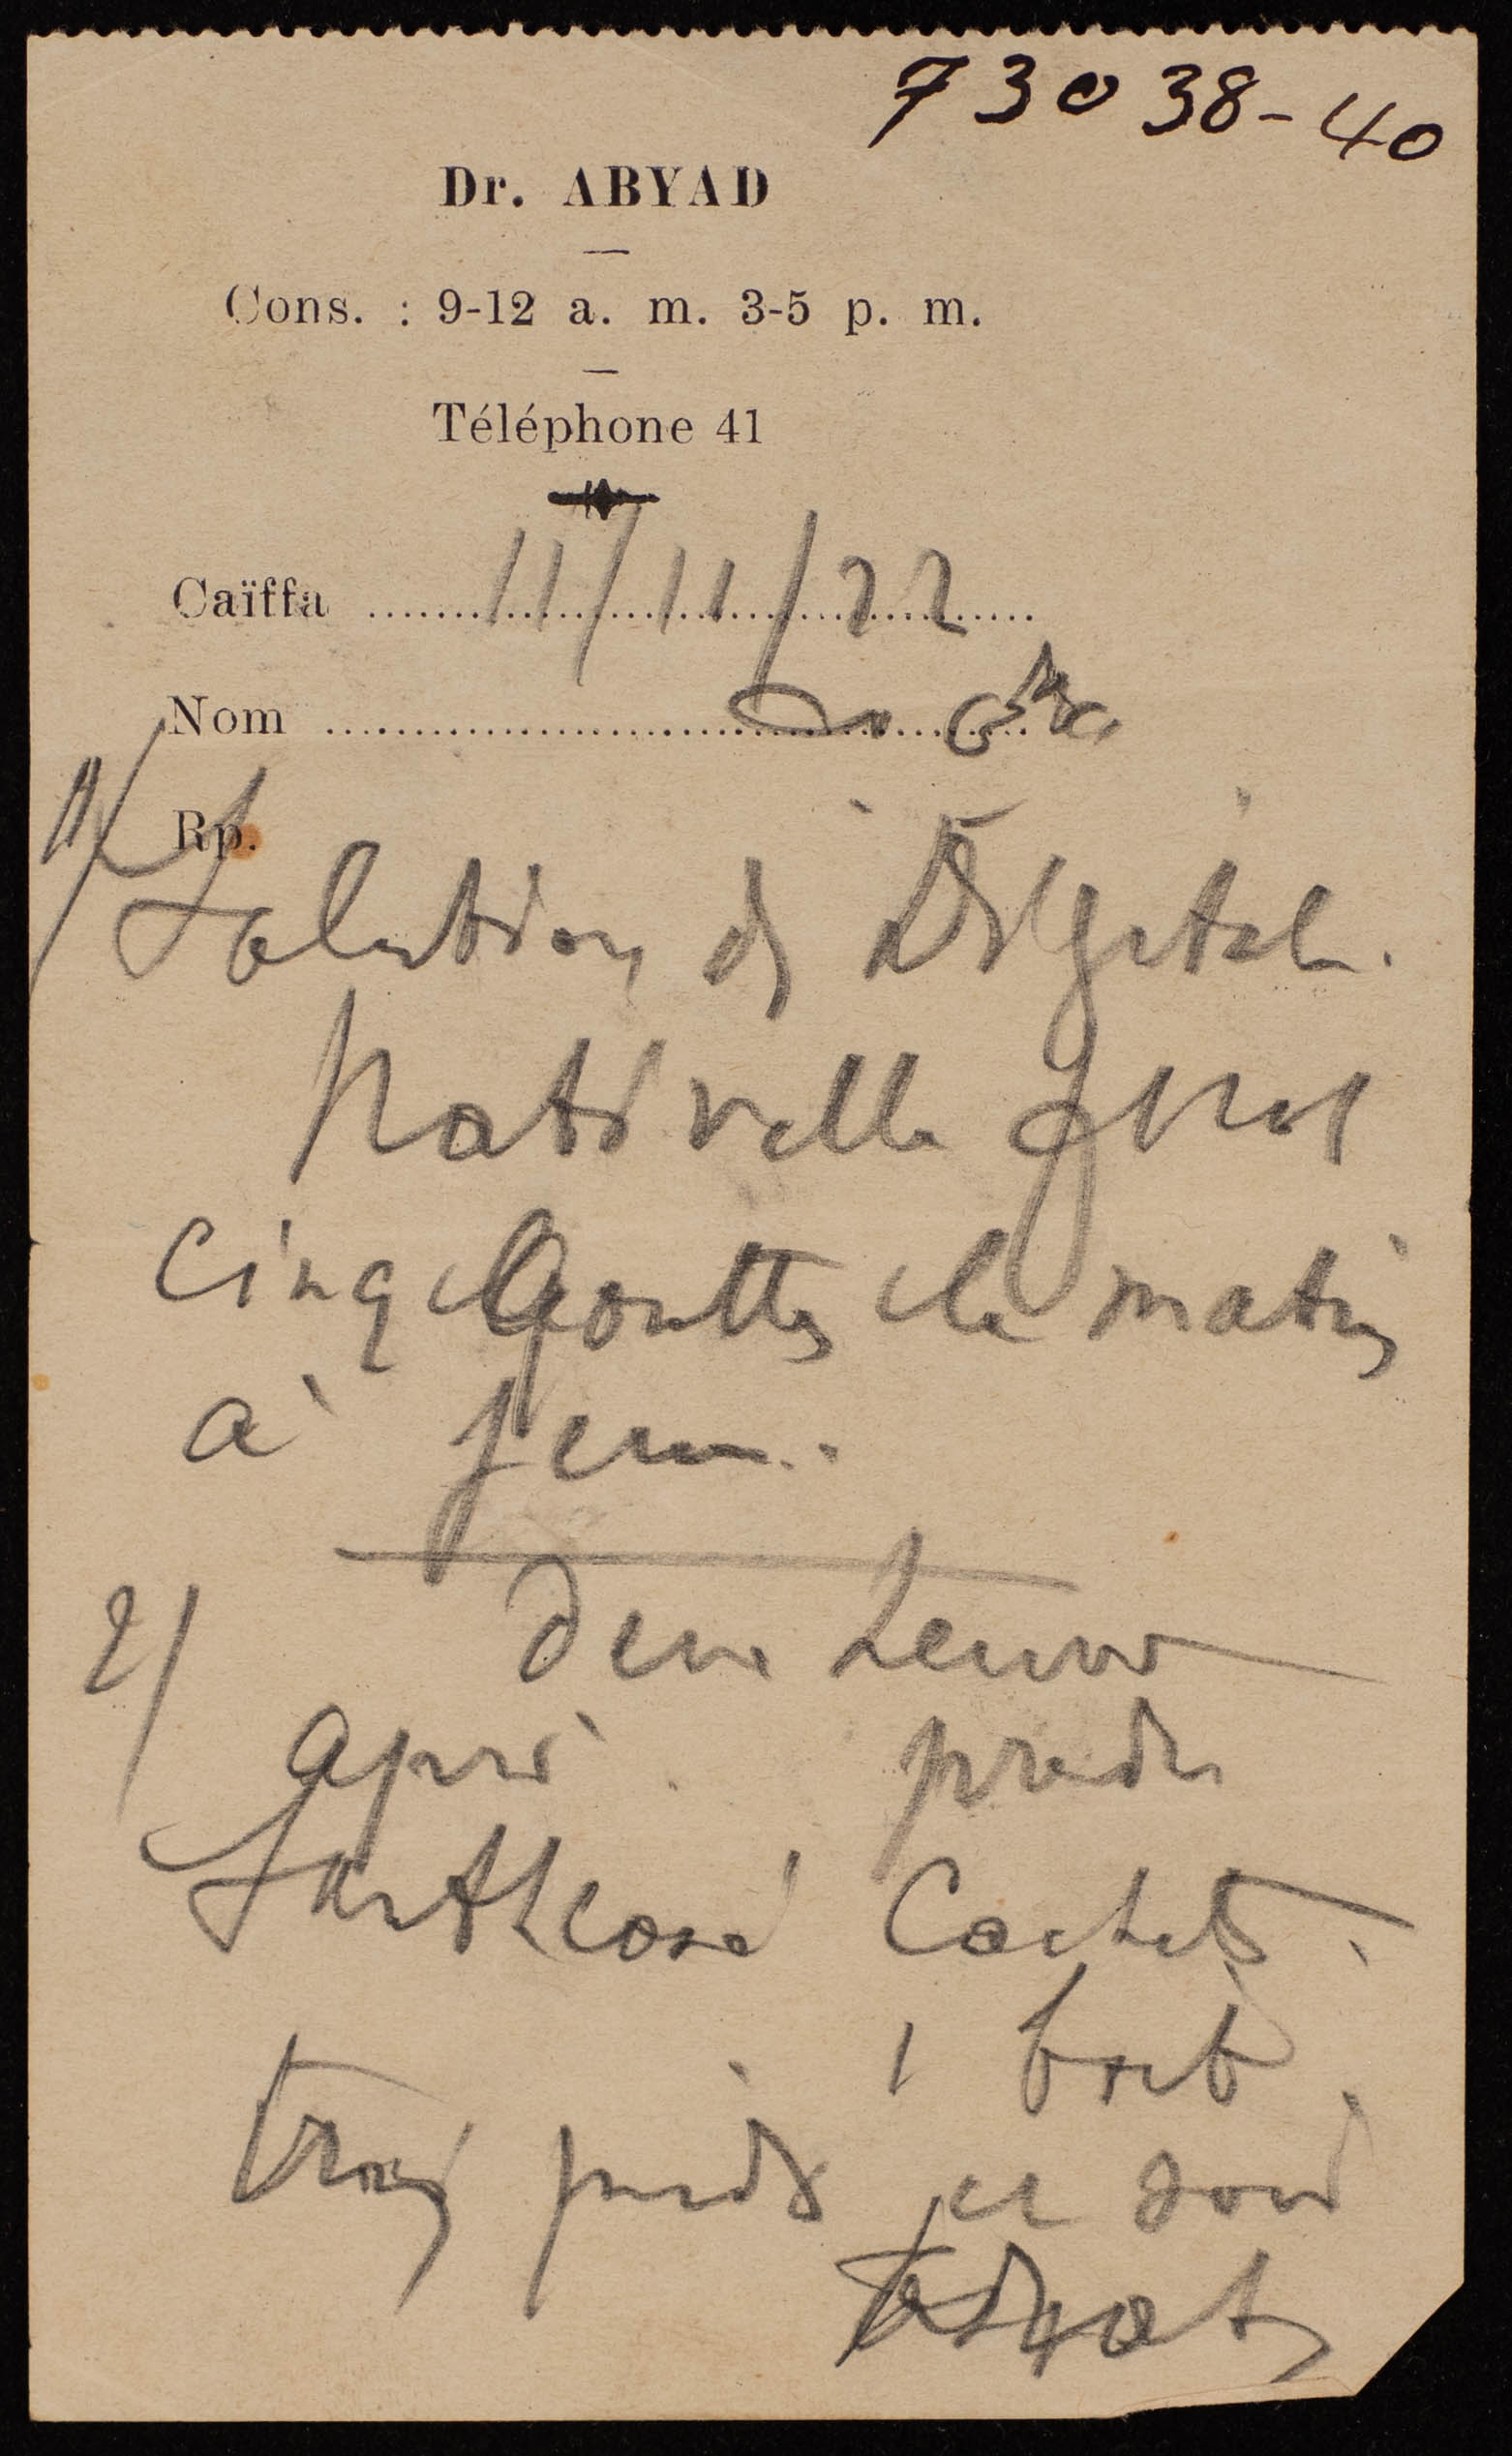 73038-40
Dr. ABYAD
Cons. : 9-12 a. m. 3-5 p. m.
Téléphone 41
Caïffa 11/11/22
Nom
Rp.
1/ Solution de Digital.
Nativelle
Cinq Gouttes le matin
à jeun.
2/ deux heures
après prendre
Santheose Cachets.
1 boite
trois par